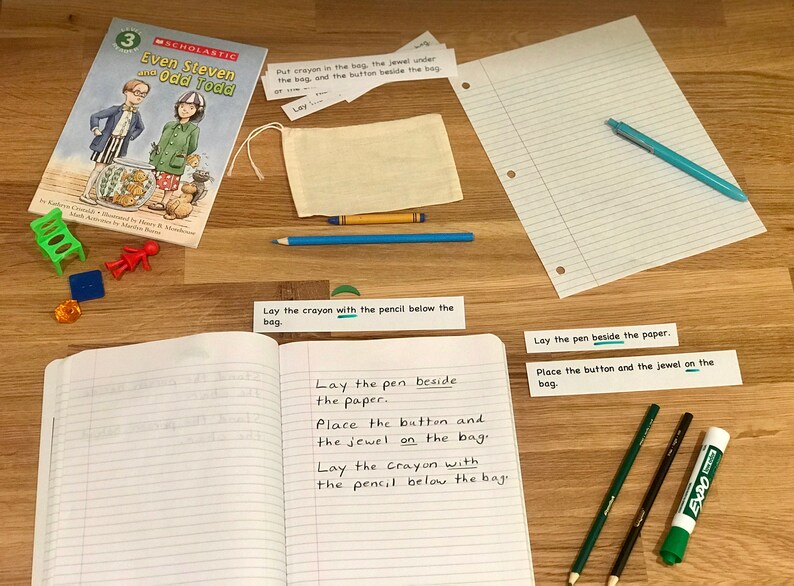 LEVEL 3 READER
SCHOLASTIC
Even Steven
and Odd Todd
by Kathryn Cristaldi • Illustrated by Henry B. Morehouse
Math Activities by Marilyn Burns
Put crayon in the bag, the jewel under
the bag, and the button beside the bag.
Lay
Lay the crayon with the pencil below the
bag.
Lay the pen beside the paper.
Place the button and the jewel on the
bag.
Lay the pen beside
the paper.
Place the button and
the jewel on the bag.
Lay the crayon with
the pencil below the bag.
EXPO